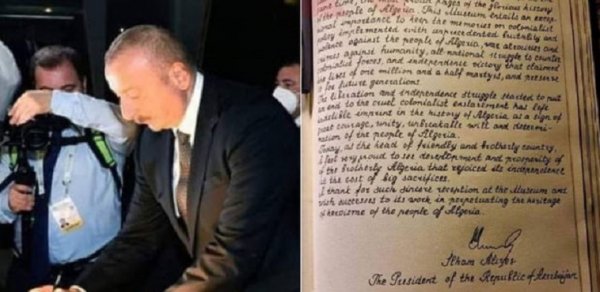 most proud pages of the glorious history
of the people of Algeria. This Museum entails an excep-
tional importance to keep the memories on colonialist
policy implemented with unprecedented brutality and
violence against the people of Algeria, war atrocities and
crimes against humanity, all-national struggle to counter
colonialist forces, and independence victory that claimed
the lives of one million and a half martyrs, and preserve
for future generations.
The liberation and independence struggle started to put
an end to the cruel colonialist enslavement has left
indelible imprint in the history of Algeria, as a sign of
great courage, unity, unbreakable will and determi-
nation of the people of Algeria.
Today, as the head of friendly and brotherly country,
I feel very proud to see development and prosperity of
the brotherly Algeria that rejoiced its independence
at the cost of big sacrifices.
I thank for such sincere reception at the Museum and
wish successes to its work in perpetuating the heritage
of heroisme of the people of Algeria.
Ilham Aliyev
The President of the Republic of Azerbaijan